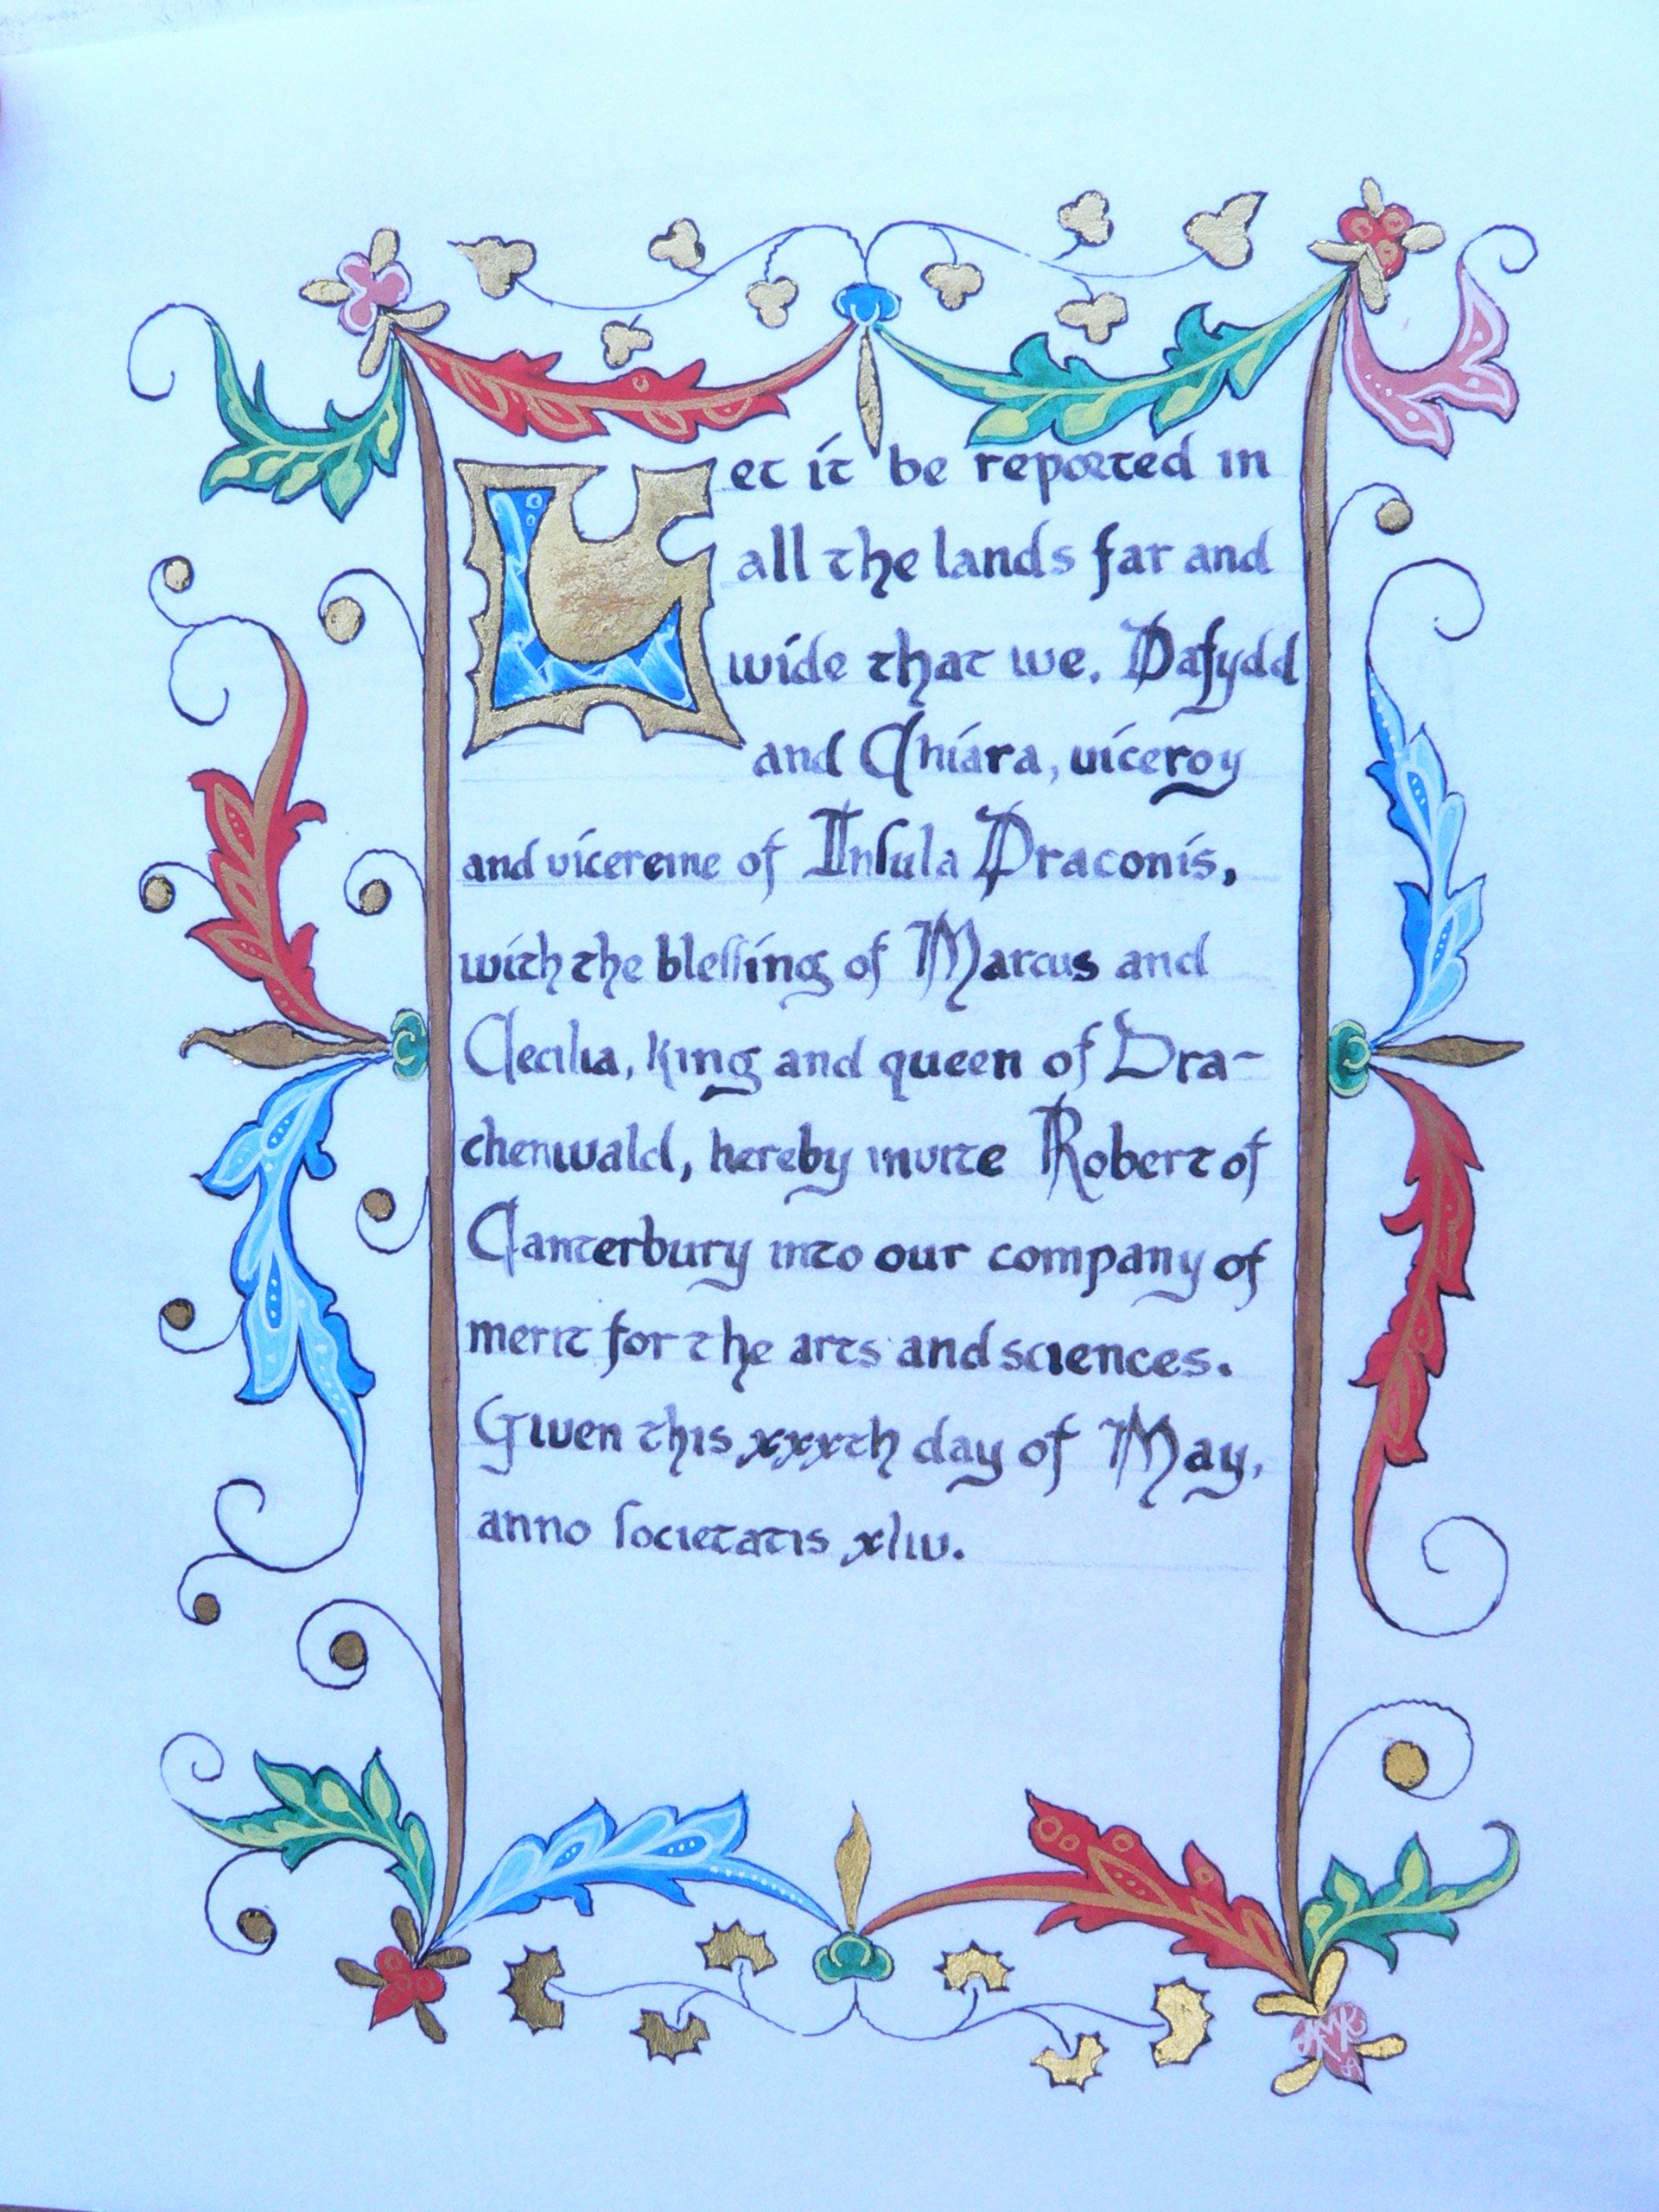 Let it be reported in
all the lands far and
wide that we, Dafydd
and Chiara, viceroy
and vicereine of Inſula Draconis,
with the bleſſing of Marcus and
Cecilia, king and queen of Dra-
chenwald, hereby invite Robert of
Canterbury into our company of
merit for the arts and sciences.
Given this xxxth day of May,
anno ſocietatis xliv.